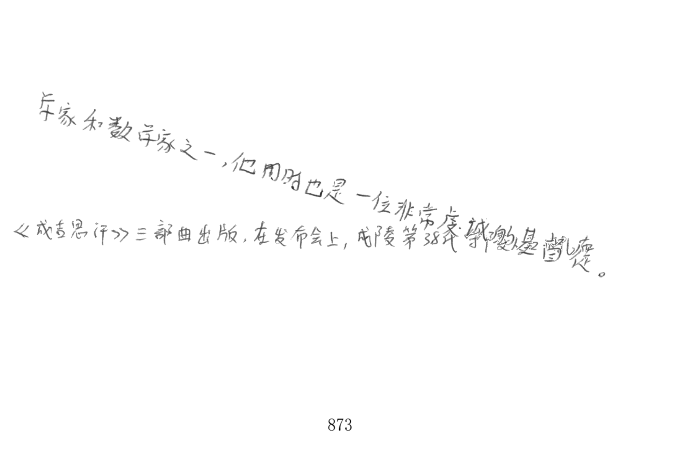 家和数学家之一，他同时也是一位非常虔诚的基督徒。
《成吉思汗》三部曲出版，在发布会上，成陵第38代
873